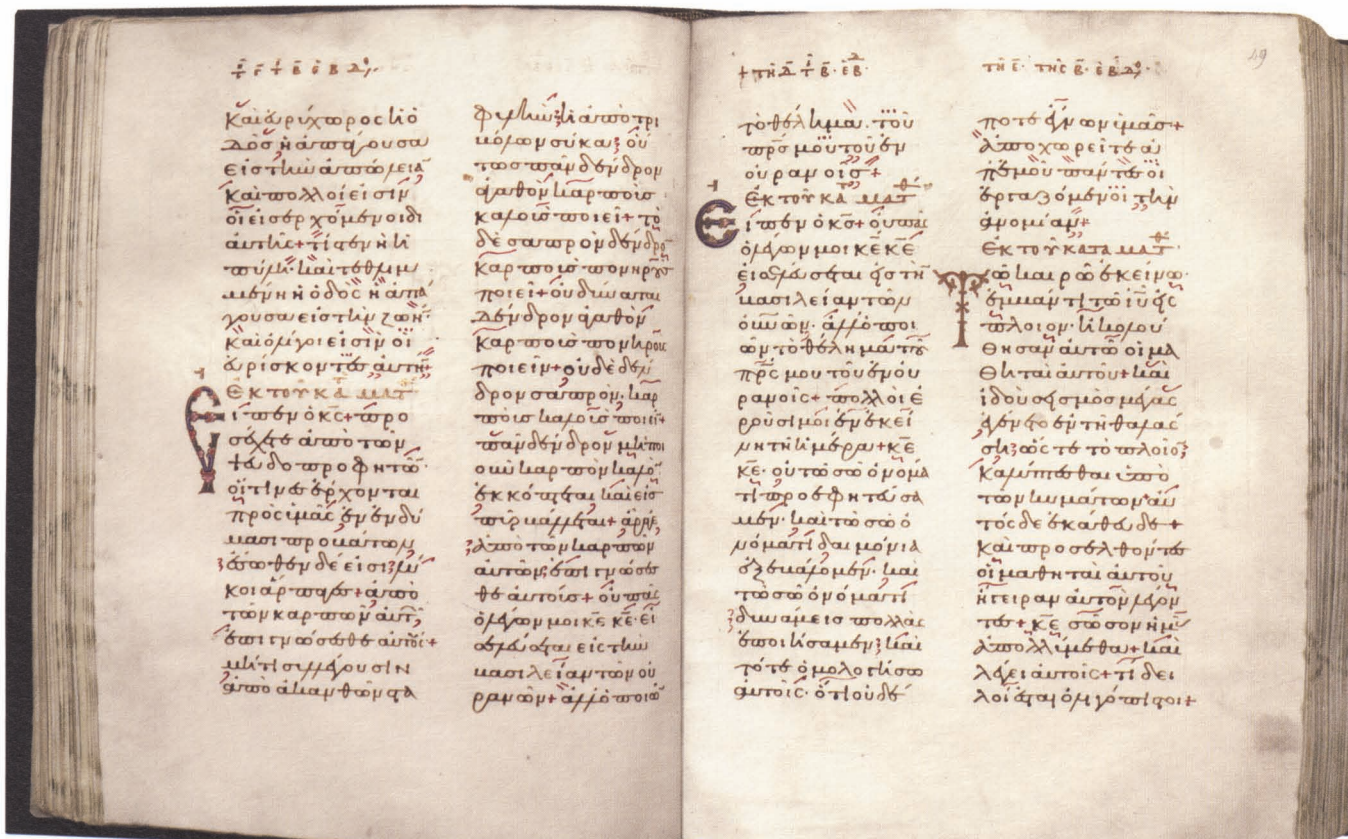 καὶ εὐρίχωρος ἡ ὁ
δὸς ἡ ἀπάγουσα
εἰς τὴν ἀπώλειαν
καὶ πολλοί εἰσιν
οἱ εἰσερχόμενοι δι
αὐτῆς + τί στενὴ ἡ
πύλη· καὶ τεθλιμ
μένη ἡ ὁδὸς ἡ ἀπά
γουσα εἰς τὴν ζωήν·
καὶ ὀλίγοι εἰσὶν οἱ
εὑρίσκοντες αὐτήν +
ἐκ τοῦ κατὰ ματθ
Εἶπεν ὁ κς + προ
σέχετε ἀπὸ τῶν
ψευδοπροφητῶν·
οἵτινες ἔρχονται
πρὸς ὑμᾶς ἐν ἐνδύ
μασι προβάτων
ἔσωθεν δέ εἰσι λύ
κοι ἅρπαγες + ἀπὸ
τῶν καρπῶν αὐτῶν
ἐπιγνώσεσθε αὐτούς +
μήτι συλλέγουσιν
ἀπὸ ἀκανθῶν στα
φυλὴν ἢ ἀπὸ τρι
βόλων σύκα; οὕ
τως πᾶν δένδρον
ἀγαθὸν καρποὺς
καλοὺς ποιεῖ + τὸ
δὲ σαπρὸν δένδρον
καρποὺς πονηροὺς
ποιεῖ + οὐ δύναται
δένδρον ἀγαθὸν
καρποὺς πονηροὺς
ποιεῖν + οὐδὲ δέν
δρον σαπρὸν· καρ
ποὺς καλοὺς ποιεῖν +
πᾶν δένδρον μὴ ποι
οῦν καρπὸν καλὸν
ἐκκόπτεται καὶ εἰς
πῦρ βάλλεται + ἄρα γε
ἀπὸ τῶν καρπῶν
αὐτῶν ἐπιγνώσεσ
θε αὐτούς + οὐ πᾶς
ὁ λέγων μοι κε κε· εἰ
σελεύσεται εἰς τὴν
βασιλείαν τῶν οὐ
ρανῶν + ἀλλ' ὁ ποιῶν
τὸ θέλημα· τοῦ
πρς μου τοῦ ἐν
οὐρανοῖς +
ἐκ τοῦ κατὰ ματθ
Εἶπεν ὁ κς + οὐ πᾶς
ὁ λέγων μοι κε κε
εἰσελεύσεται εἰς τὴν
βασιλείαν τῶν
οὐνῶν· ἀλλ' ὁ ποι
ῶν τὸ θέλημα τοῦ
πρς μου τοῦ ἐν οὐ
ρανοῖς + πολλοὶ ἐ
ροῦσί μοι ἐν ἐκεί
νῃ τῇ ἡμέρᾳ + κε
κε· οὐ τῷ σῷ ὀνόμα
τι προεφητεύσα
μεν· καὶ τῷ σῷ ὀ
νόματι δαιμόνια
ἐξεβάλομεν· καὶ
τῷ σῷ ὀνόματι
δυνάμεις πολλὰς
ἐποιήσαμεν; καὶ
τότε ὁμολογήσω
αὐτοῖς· ὅτι οὐδέ
ποτε ἔγνων ὑμᾶς +
ἀποχωρεῖτε ἀ
π' ἐμοῦ πάντες οἱ
ἐργαζόμενοι τὴν
ἀνομίαν +
ἐκ τοῦ κατὰ ματθ
Τῶ καιρῶ ἐκείνω·
ἐμβάντι τῶ ιυ εἰς
πλοῖον· ἠκολού
θησαν αὐτῶ οἱ μα
θηταὶ αὐτοῦ + καὶ
ἰδοὺ σεισμὸς μέγας
ἐγένετο ἐν τῇ θαλάσ
σῃ ὥστε τὸ πλοῖον
καλύπτεσθαι ὑπὸ
τῶν κυμάτων· αὐ
τὸς δὲ ἐκάθευδε +
καὶ προσελθόντες
οἱ μαθηταὶ αὐτοῦ
ἤγειραν αὐτὸν λέγον
τες + κε σῶσον ἡμᾶς
ἀπολλύμεθα + καὶ
λέγει αὐτοῖς + τί δει
λοί ἐσται ὀλιγόπιστοι +
49